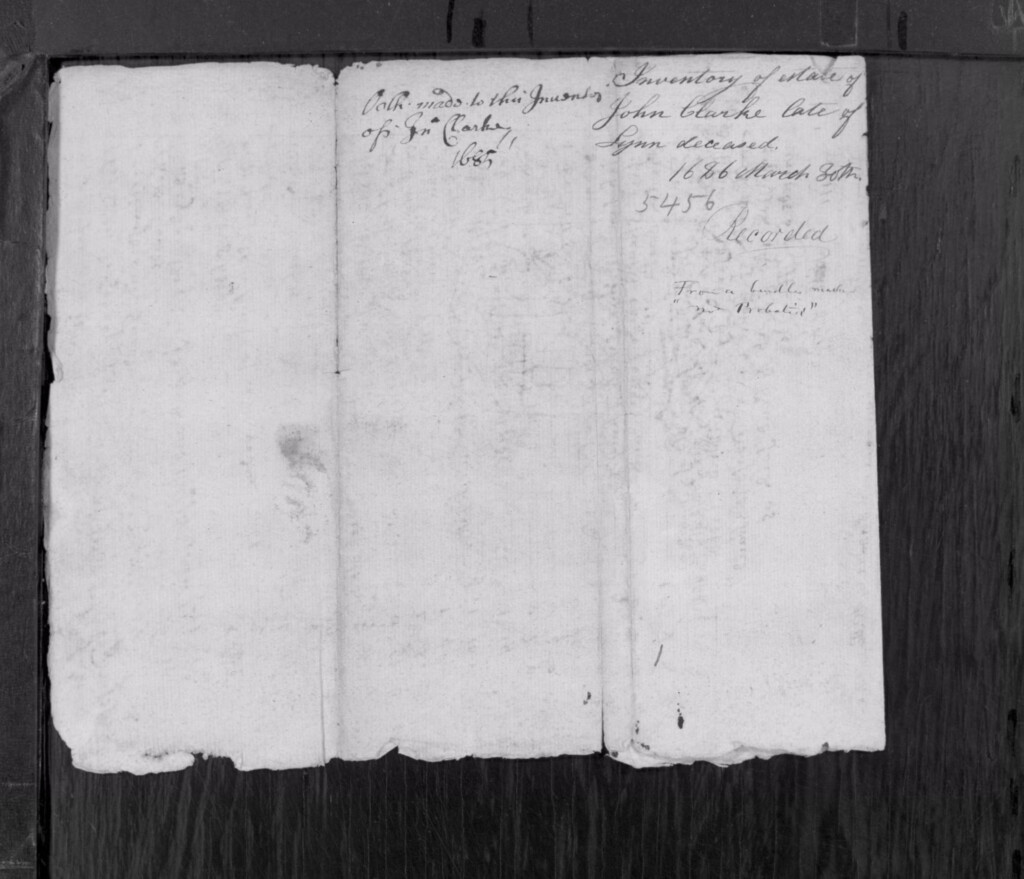 Oath made to this Inventory
off Jnᵒ Clarke,
1685
Inventory of estate of
John Clarke late of
Lynn deceased.
1686 March 30th
5456
Recorded
From a bundle marked
"not Probated"